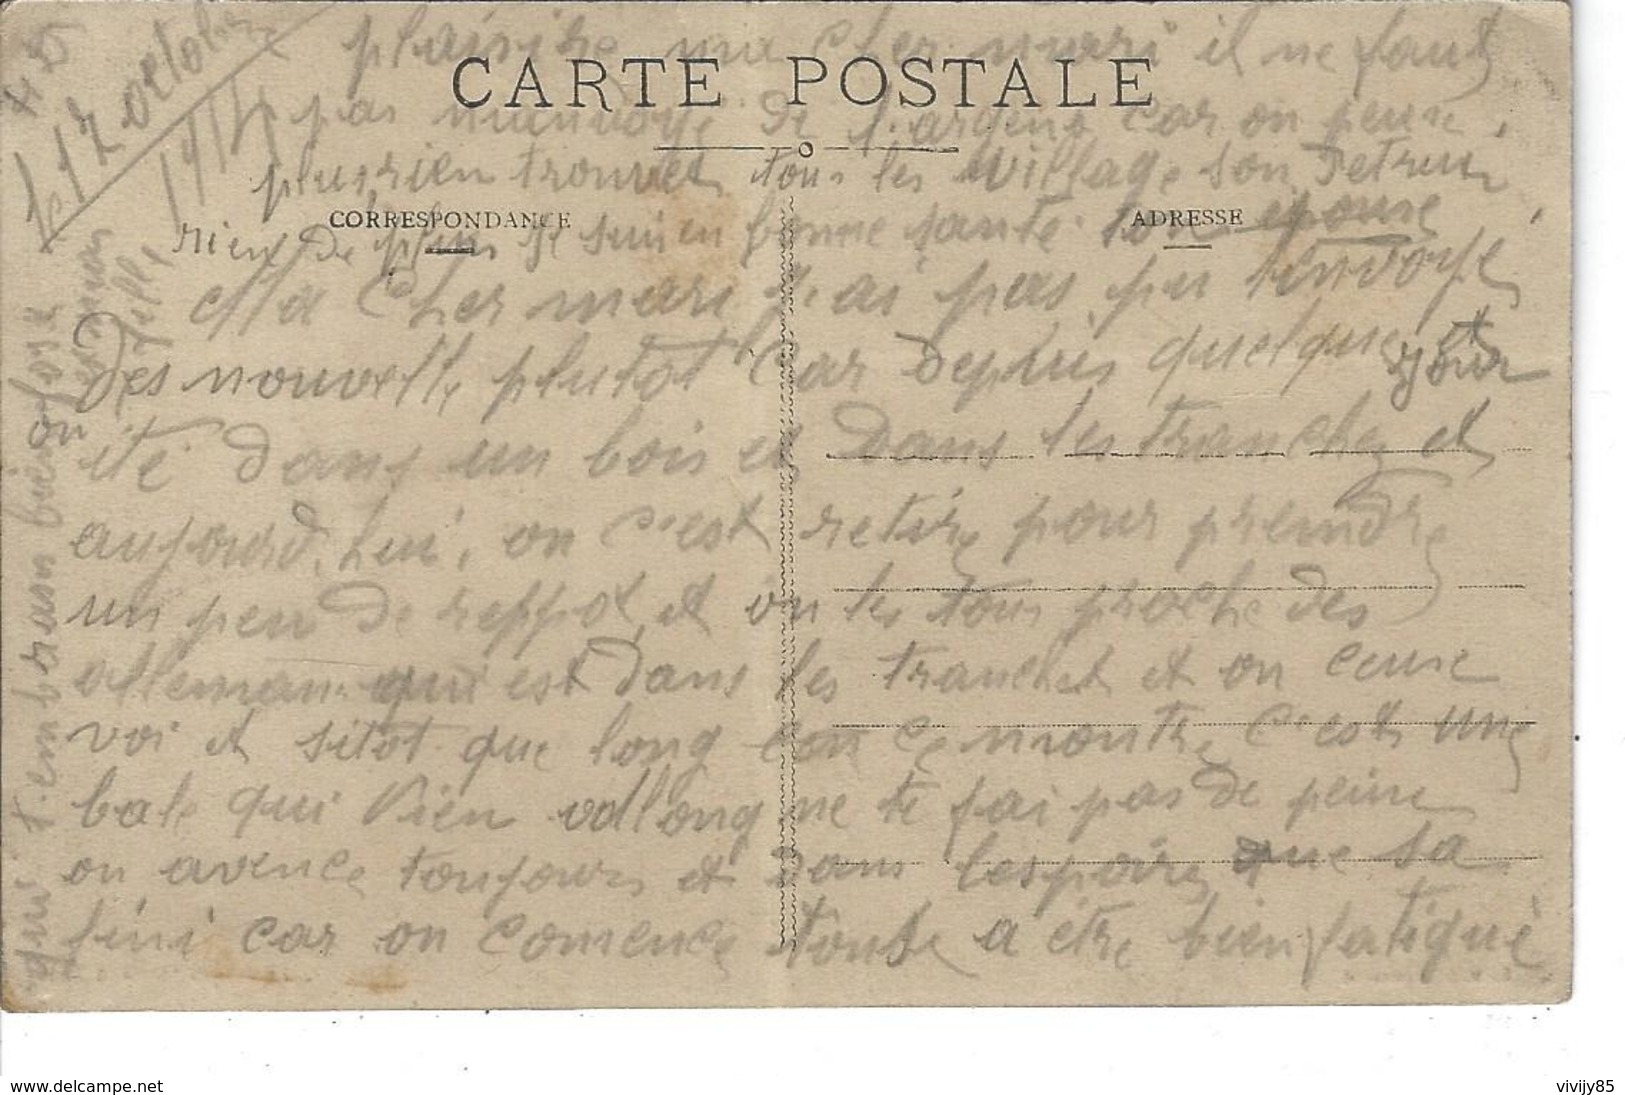 le 17 octobre
191
plaisire ma cher mari il ne faut
CARTE POSTALE
pas m'envoye de l'argent car on peux
plus rien trouvet tous les village son Detrui
CORRESPONDANCE
ADRESSE
rien de plus je suis en bonne santé ton epouse
Ma Cher mari J'ai pas pu t'envoye
des nouvelle plutot Car Depuis quelque jour
été dans un bois et dans les tranche et
aujourd'hui, on c'est retire pour prendre
un peu de reppot et on les tous proche des
alleman qui est dans les tranchet et on ceuse
voi et sitot que long con ce montre c'est une
bale qui vien vollong ne te fai pas de peine
on avence toujours et dans l'espoire que sa
fini car on comence toute a etre bien fatigué
qui t'embrasse bien fort
ton
fille
www.delcampe.net
vivijy85